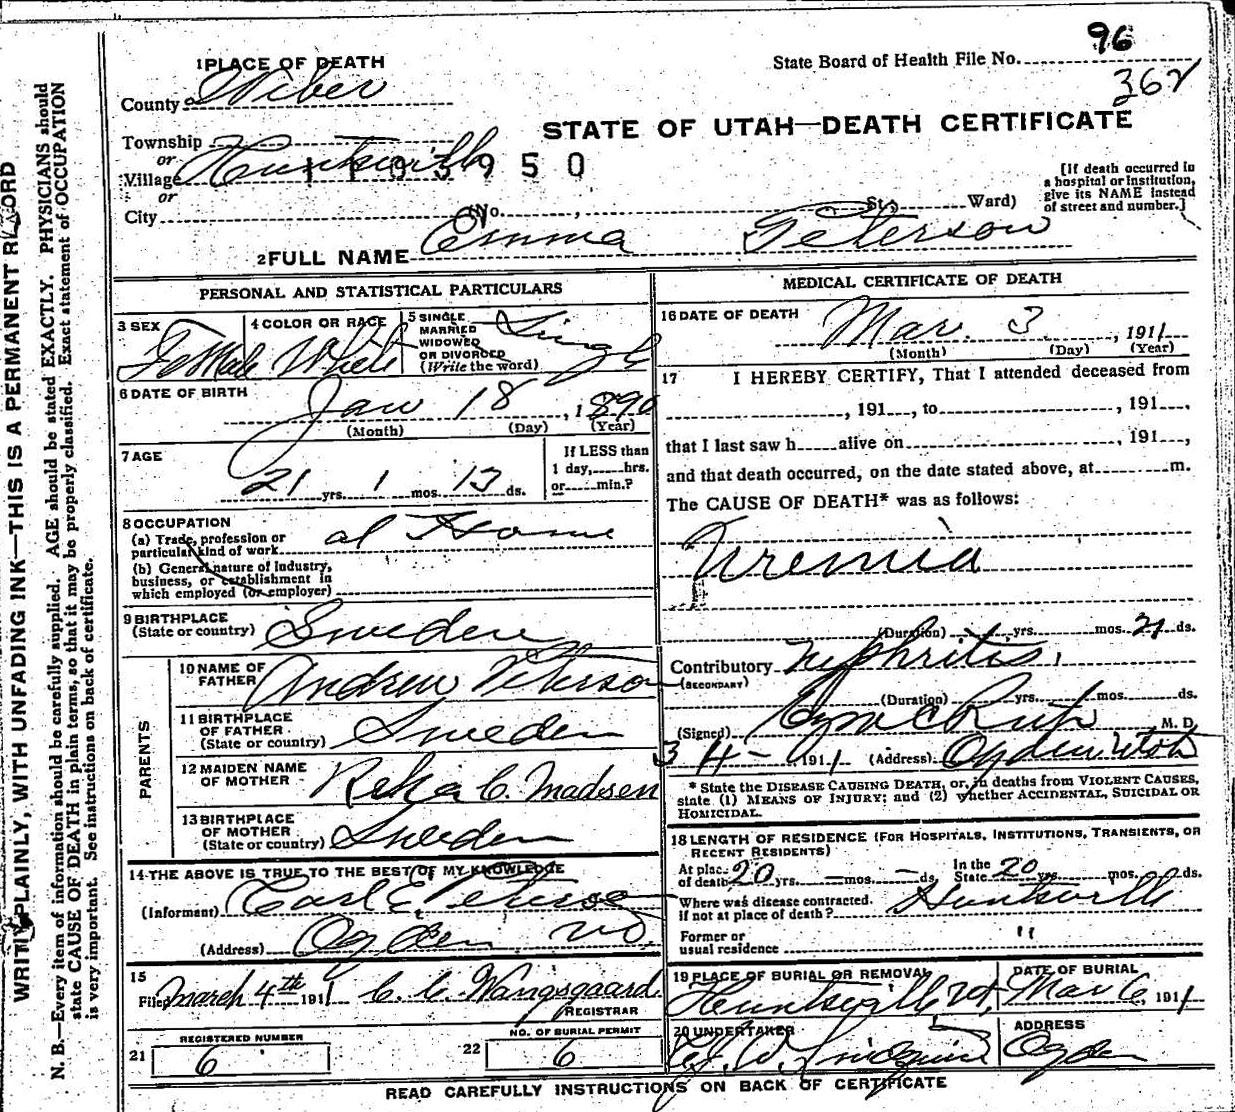 96
1 PLACE OF DEATH
State Board of Health File No.
362
County Weber
STATE OF UTAH—DEATH CERTIFICATE
Township
or
Village Huntsville
950
or
City (No. , St.; Ward)
[If death occurred in a hospital or institution, give its NAME instead of street and number.]
2 FULL NAME Emma Peterson
PERSONAL AND STATISTICAL PARTICULARS
3 SEX FeMale
4 COLOR OR RACE White
5 SINGLE MARRIED WIDOWED OR DIVORCED (Write the word) Single
6 DATE OF BIRTH
Jan 18, 1890
(Month) (Day) (Year)
7 AGE
21 yrs. 1 mos. 13 ds.
If LESS than 1 day, hrs. or min.?
8 OCCUPATION
(a) Trade, profession or particular kind of work at Home
(b) General nature of industry, business, or establishment in which employed (or employer)
9 BIRTHPLACE (State or country) Sweden
PARENTS
10 NAME OF FATHER Andrew Peterson
11 BIRTHPLACE OF FATHER (State or country) Sweden
12 MAIDEN NAME OF MOTHER C. Madsen
13 BIRTHPLACE OF MOTHER (State or country) Sweden
14 THE ABOVE IS TRUE TO THE BEST OF MY KNOWLEDGE
(Informant) Carl E Peterson
(Address) Ogden
15
Filed March 4th 1911 C. C. Wangsgaard
REGISTRAR
21 REGISTERED NUMBER 6
22 NO. OF BURIAL PERMIT 6
MEDICAL CERTIFICATE OF DEATH
16 DATE OF DEATH
Mar. 3, 1911
(Month) (Day) (Year)
17 I HEREBY CERTIFY, That I attended deceased from
, 191 , to , 191 ,
that I last saw h alive on , 191 ,
and that death occurred, on the date stated above, at m.
The CAUSE OF DEATH* was as follows:
Uremia
(Duration) yrs. mos. 21 ds.
Contributory Nephritis
(SECONDARY)
(Duration) yrs. 1 mos. ds.
(Signed) M. D.
3 4 - 1911 (Address) Ogden Utah
* State the DISEASE CAUSING DEATH, or, in deaths from VIOLENT CAUSES, state (1) MEANS OF INJURY; and (2) whether ACCIDENTAL, SUICIDAL OR HOMICIDAL.
18 LENGTH OF RESIDENCE (FOR HOSPITALS, INSTITUTIONS, TRANSIENTS, OR RECENT RESIDENTS)
At place of death 20 yrs. — mos. — ds. In the State 20 yrs. mos. ds.
Where was disease contracted, if not at place of death? Huntsville
Former or usual residence "
19 PLACE OF BURIAL OR REMOVAL Huntsville Ut.
DATE OF BURIAL Mar 6, 1911
20 UNDERTAKER
ADDRESS Ogden
READ CAREFULLY INSTRUCTIONS ON BACK OF CERTIFICATE
WRITE PLAINLY, WITH UNFADING INK—THIS IS A PERMANENT RECORD
N. B.—Every item of information should be carefully supplied. AGE should be stated EXACTLY. PHYSICIANS should
state CAUSE OF DEATH in plain terms, so that it may be properly classified. Exact statement of OCCUPATION
is very important. See instructions on back of certificate.